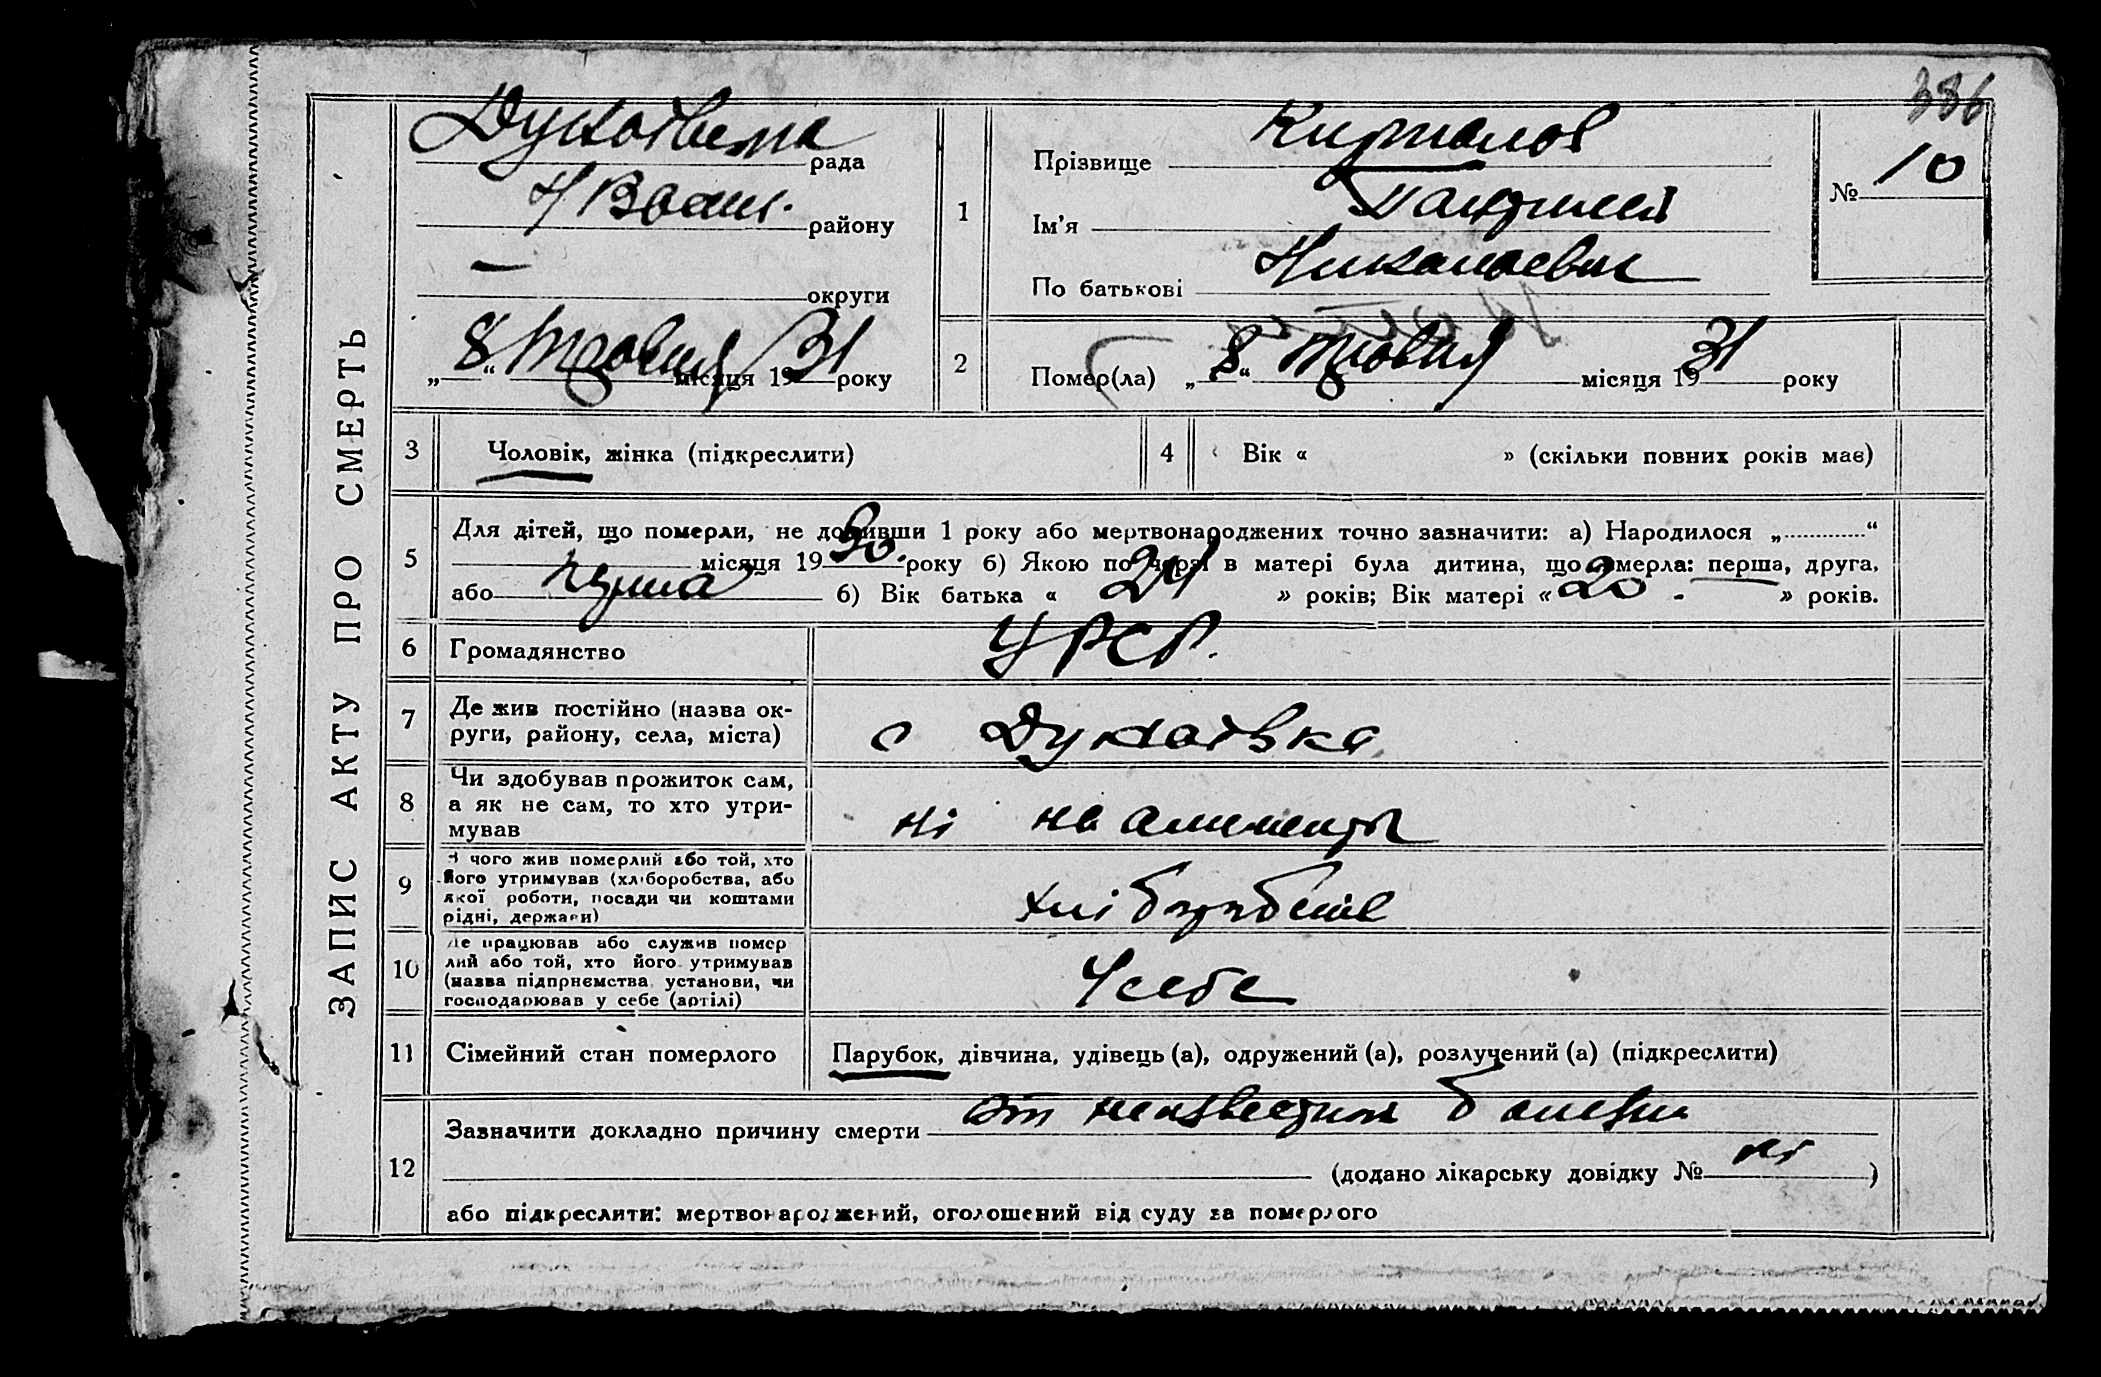 386
ЗАПИС АКТУ ПРО СМЕРТЬ
рада
Н Васил. району
— округи
„8“ Травня місяця 1931 року
1
Прізвище
Ім'я
По батькові Николаевич
№ 10
2
Помер(ла) „8“ травня місяця 1931 року
3
Чоловік, жінка (підкреслити)
4
Вік « » (скільки повних років має)
5
Для дітей, що померли, не доживши 1 року або мертвонароджених точно зазначити: а) Народилося „ “
місяця 1930. року б) Якою по черзі в матері була дитина, що вмерла: перша, друга,
або перша б) Вік батька « 24 » років; Вік матері « 20. » років.
6
Громадянство
УРСР.
7
Де жив постійно (назва ок-
руги, району, села, міста)
с Дукатівка
8
Чи здобував прожиток сам,
а як не сам, то хто утри-
мував
ні на алименты
9
З чого жив померлий або той, хто
його утримував (хліборобства, або
якої роботи, посади чи коштами
рідні, держави)
10
Де працював або служив помер
лий або той, хто його утримував
(назва підприємства, установи, чи
господарював у себе (артілі)
У себе
11
Сімейний стан померлого
Парубок, дівчина, удівець (а), одружений (а), розлучений (а) (підкреслити)
12
Зазначити докладно причину смерти от неизвестной болезни
(додано лікарську довідку № ні )
або підкреслити: мертвонароджений, оголошений від суду за померлого